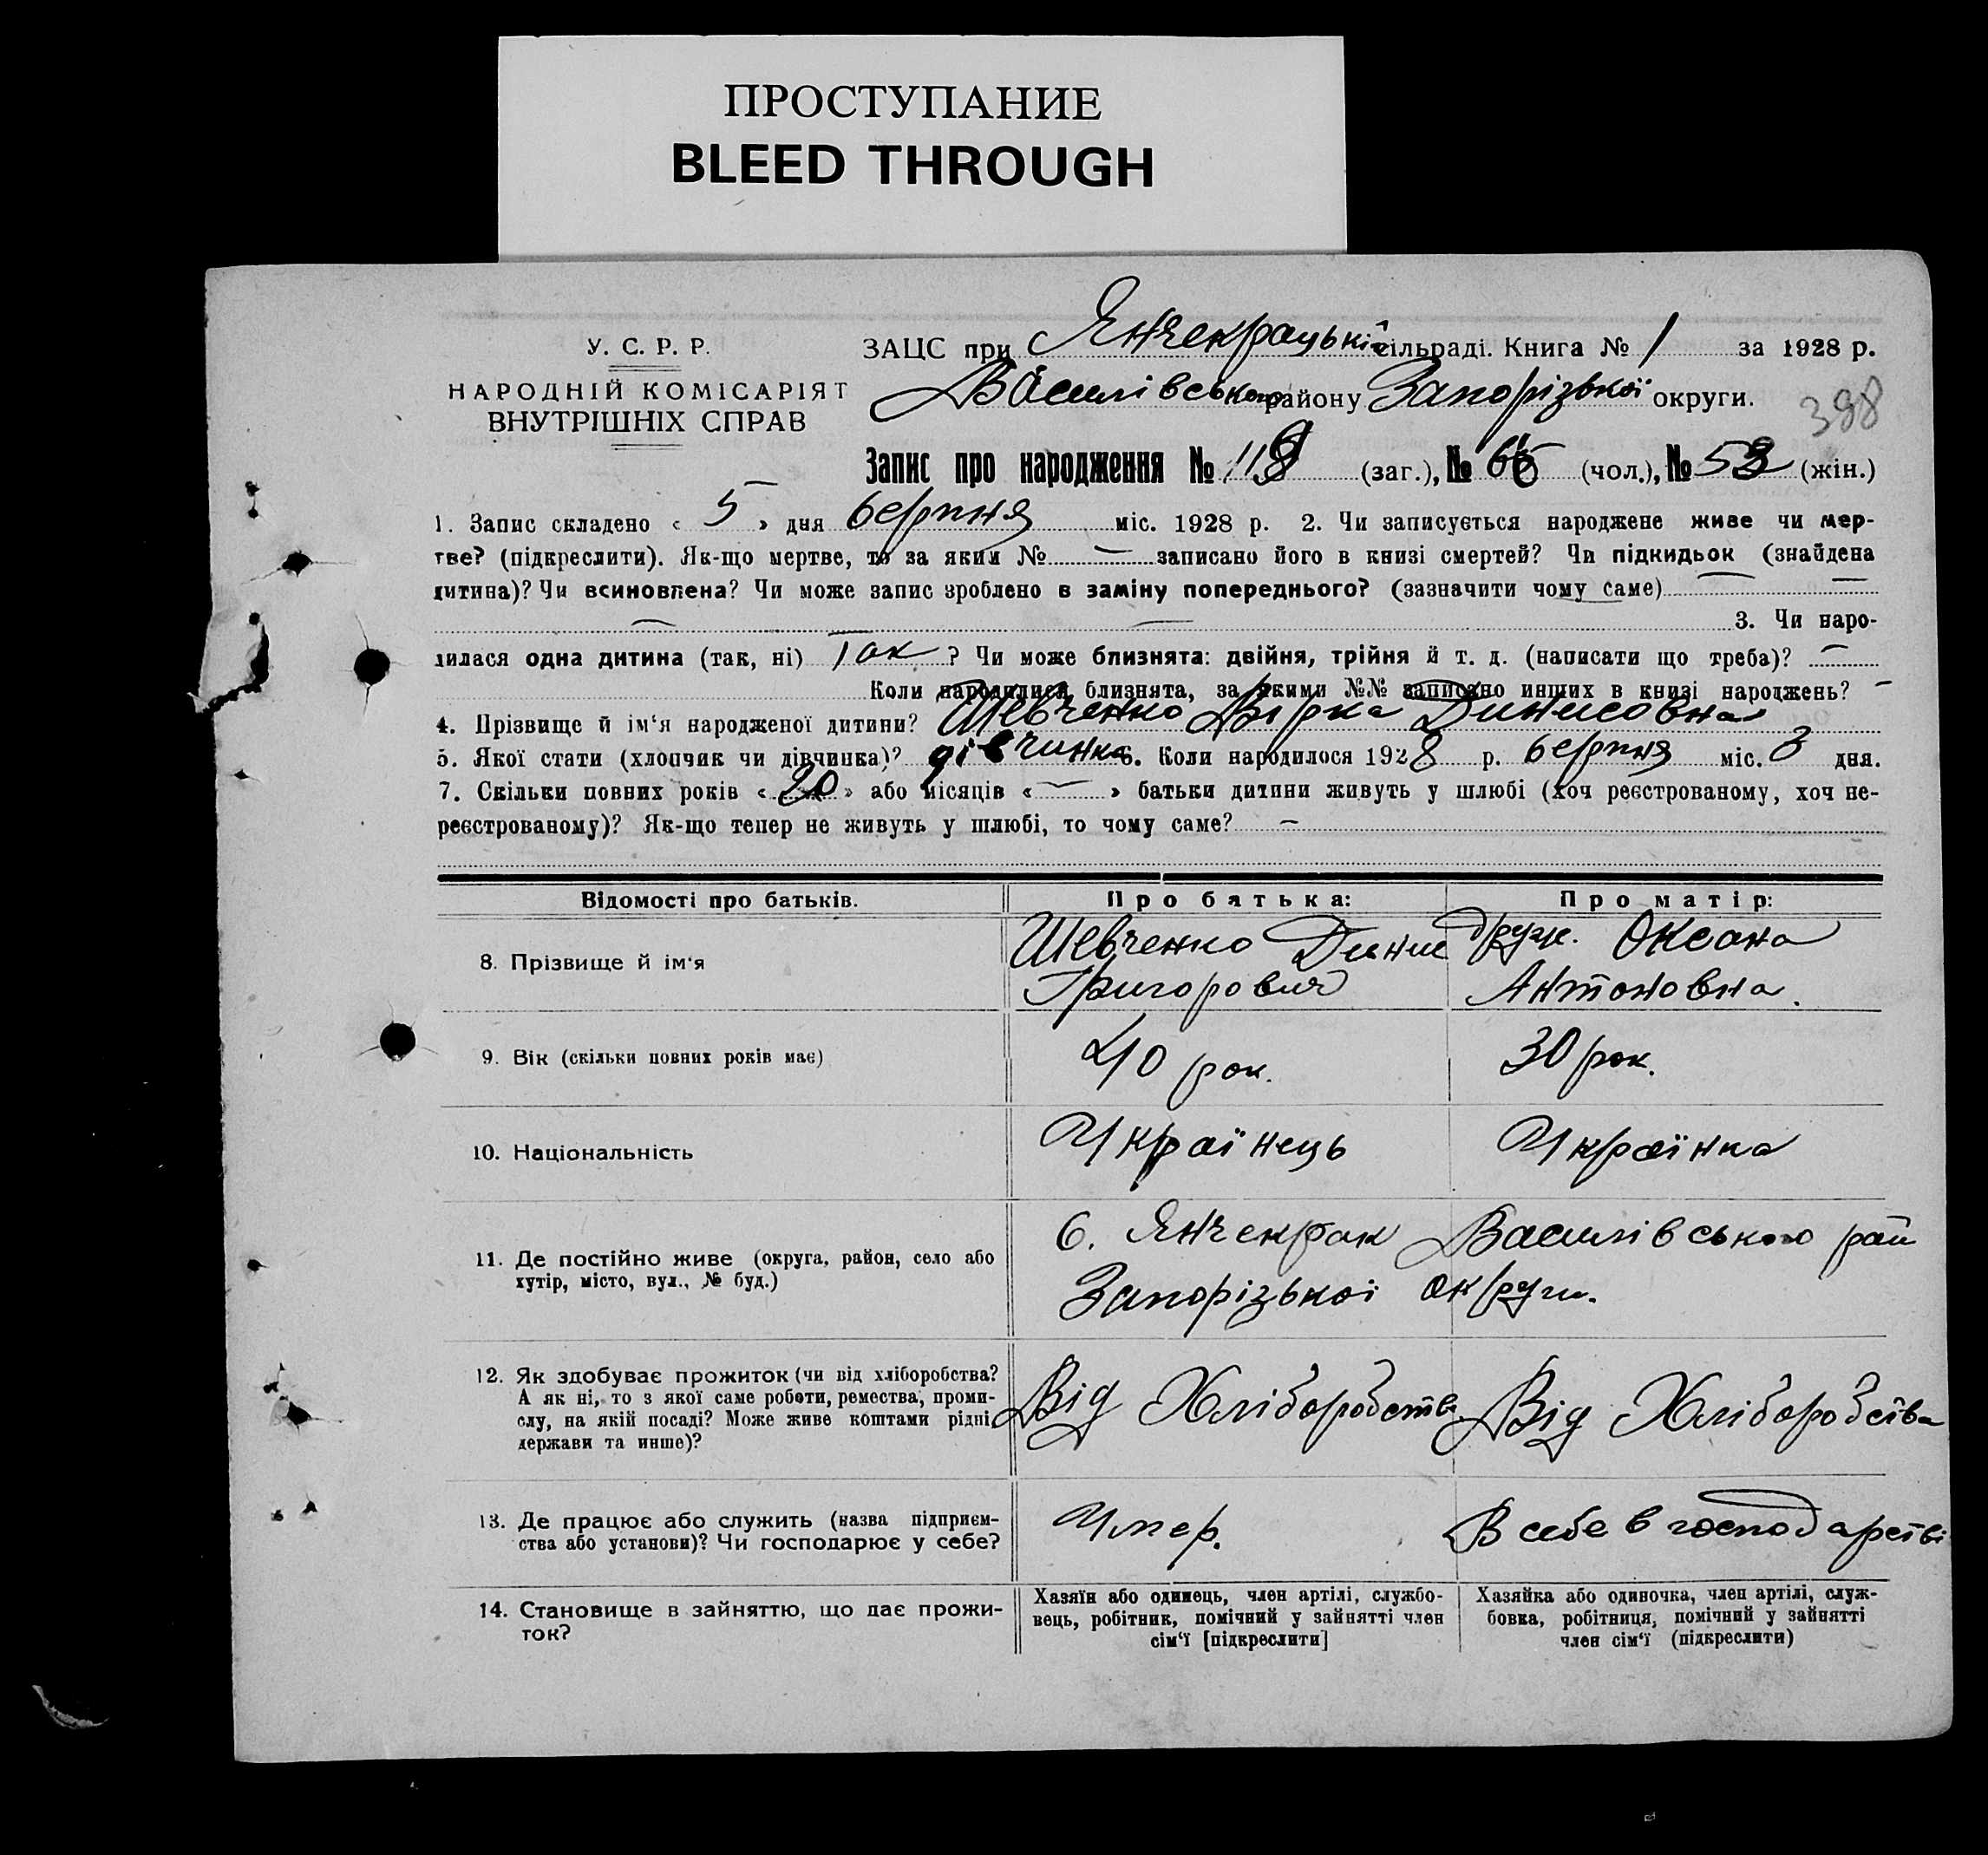 ПРОСТУПАНИЕ
BLEED THROUGH
У. С. Р. Р.
НАРОДНІЙ КОМІСАРІЯТ
ВНУТРІШНІХ СПРАВ
ЗАЦС при Янчекрацькій сільраді. Книга № 1 за 1928 р.
Василівського району Запорізької округи.
398
Запис про народження № (заг.), № (чол.), № 53 (жін.)
1. Запис складено « 5 » дня берпня міс. 1928 р. 2. Чи записується народжене живе чи мер-
тве? (підкреслити). Як-що мертве, то за яким № — записано його в книзі смертей? Чи підкидьок (знайдена
дитина)? Чи всиновлена? Чи може запис зроблено в заміну попереднього? (зазначити чому саме) — —
— — 3. Чи наро-
дилася одна дитина (так, ні) Так ? Чи може близнята: двійня, трійня й т. д. (написати що треба)? —
Коли народилися близнята, за якими №№ записано инших в книзі народжень? —
4. Прізвище й ім‘я народженої дитини? Шевченко Вірка Динисовна
5. Якої статі (хлопчик чи дівчинка)? дівчинка 6. Коли народилося 1928 р. берпня міс. 3 дня.
7. Скільки повних років « 20 » або місяців « — » батьки дитини живуть у шлюбі (хоч реєстрованому, хоч не-
реєстрованому)? Як-що тепер не живуть у шлюбі, то чому саме? —
Відомості про батьків. Про батька: Про матір:
8. Прізвище й ім‘я
Шевченко Динис
Григорович
друж. Оксана
Антоновна.
9. Вік (скільки повних років має) 40 рок. 30 рок.
10. Національність Українець Українка
11. Де постійно живе (округа, район, село або
хутір, місто, вул., № буд.)
с. Янчекрак Василівського рай
Запорізької округи.
12. Як здобуває прожиток (чи від хліборобства?
А як ні, то з якої саме роботи, ремества, проми-
слу, на якій посаді? Може живе коштами рідні,
держави та инше)?
Від Хліборобства Від Хліборобства
13. Де працює або служить (назва підприєм-
ства або установи)? Чи господарює у себе?
Умер. В себе в господарстві
14. Становище в зайняттю, що дає прожи-
ток?
Хазяїн або одинець, член артілі, службо-
вець, робітник, помічний у зайнятті член
сім‘ї [підкреслити]
Хазяйка або одиночка, член артілі, служ-
бовка, робітниця, помічний у зайнятті
член сім‘ї (підкреслити)